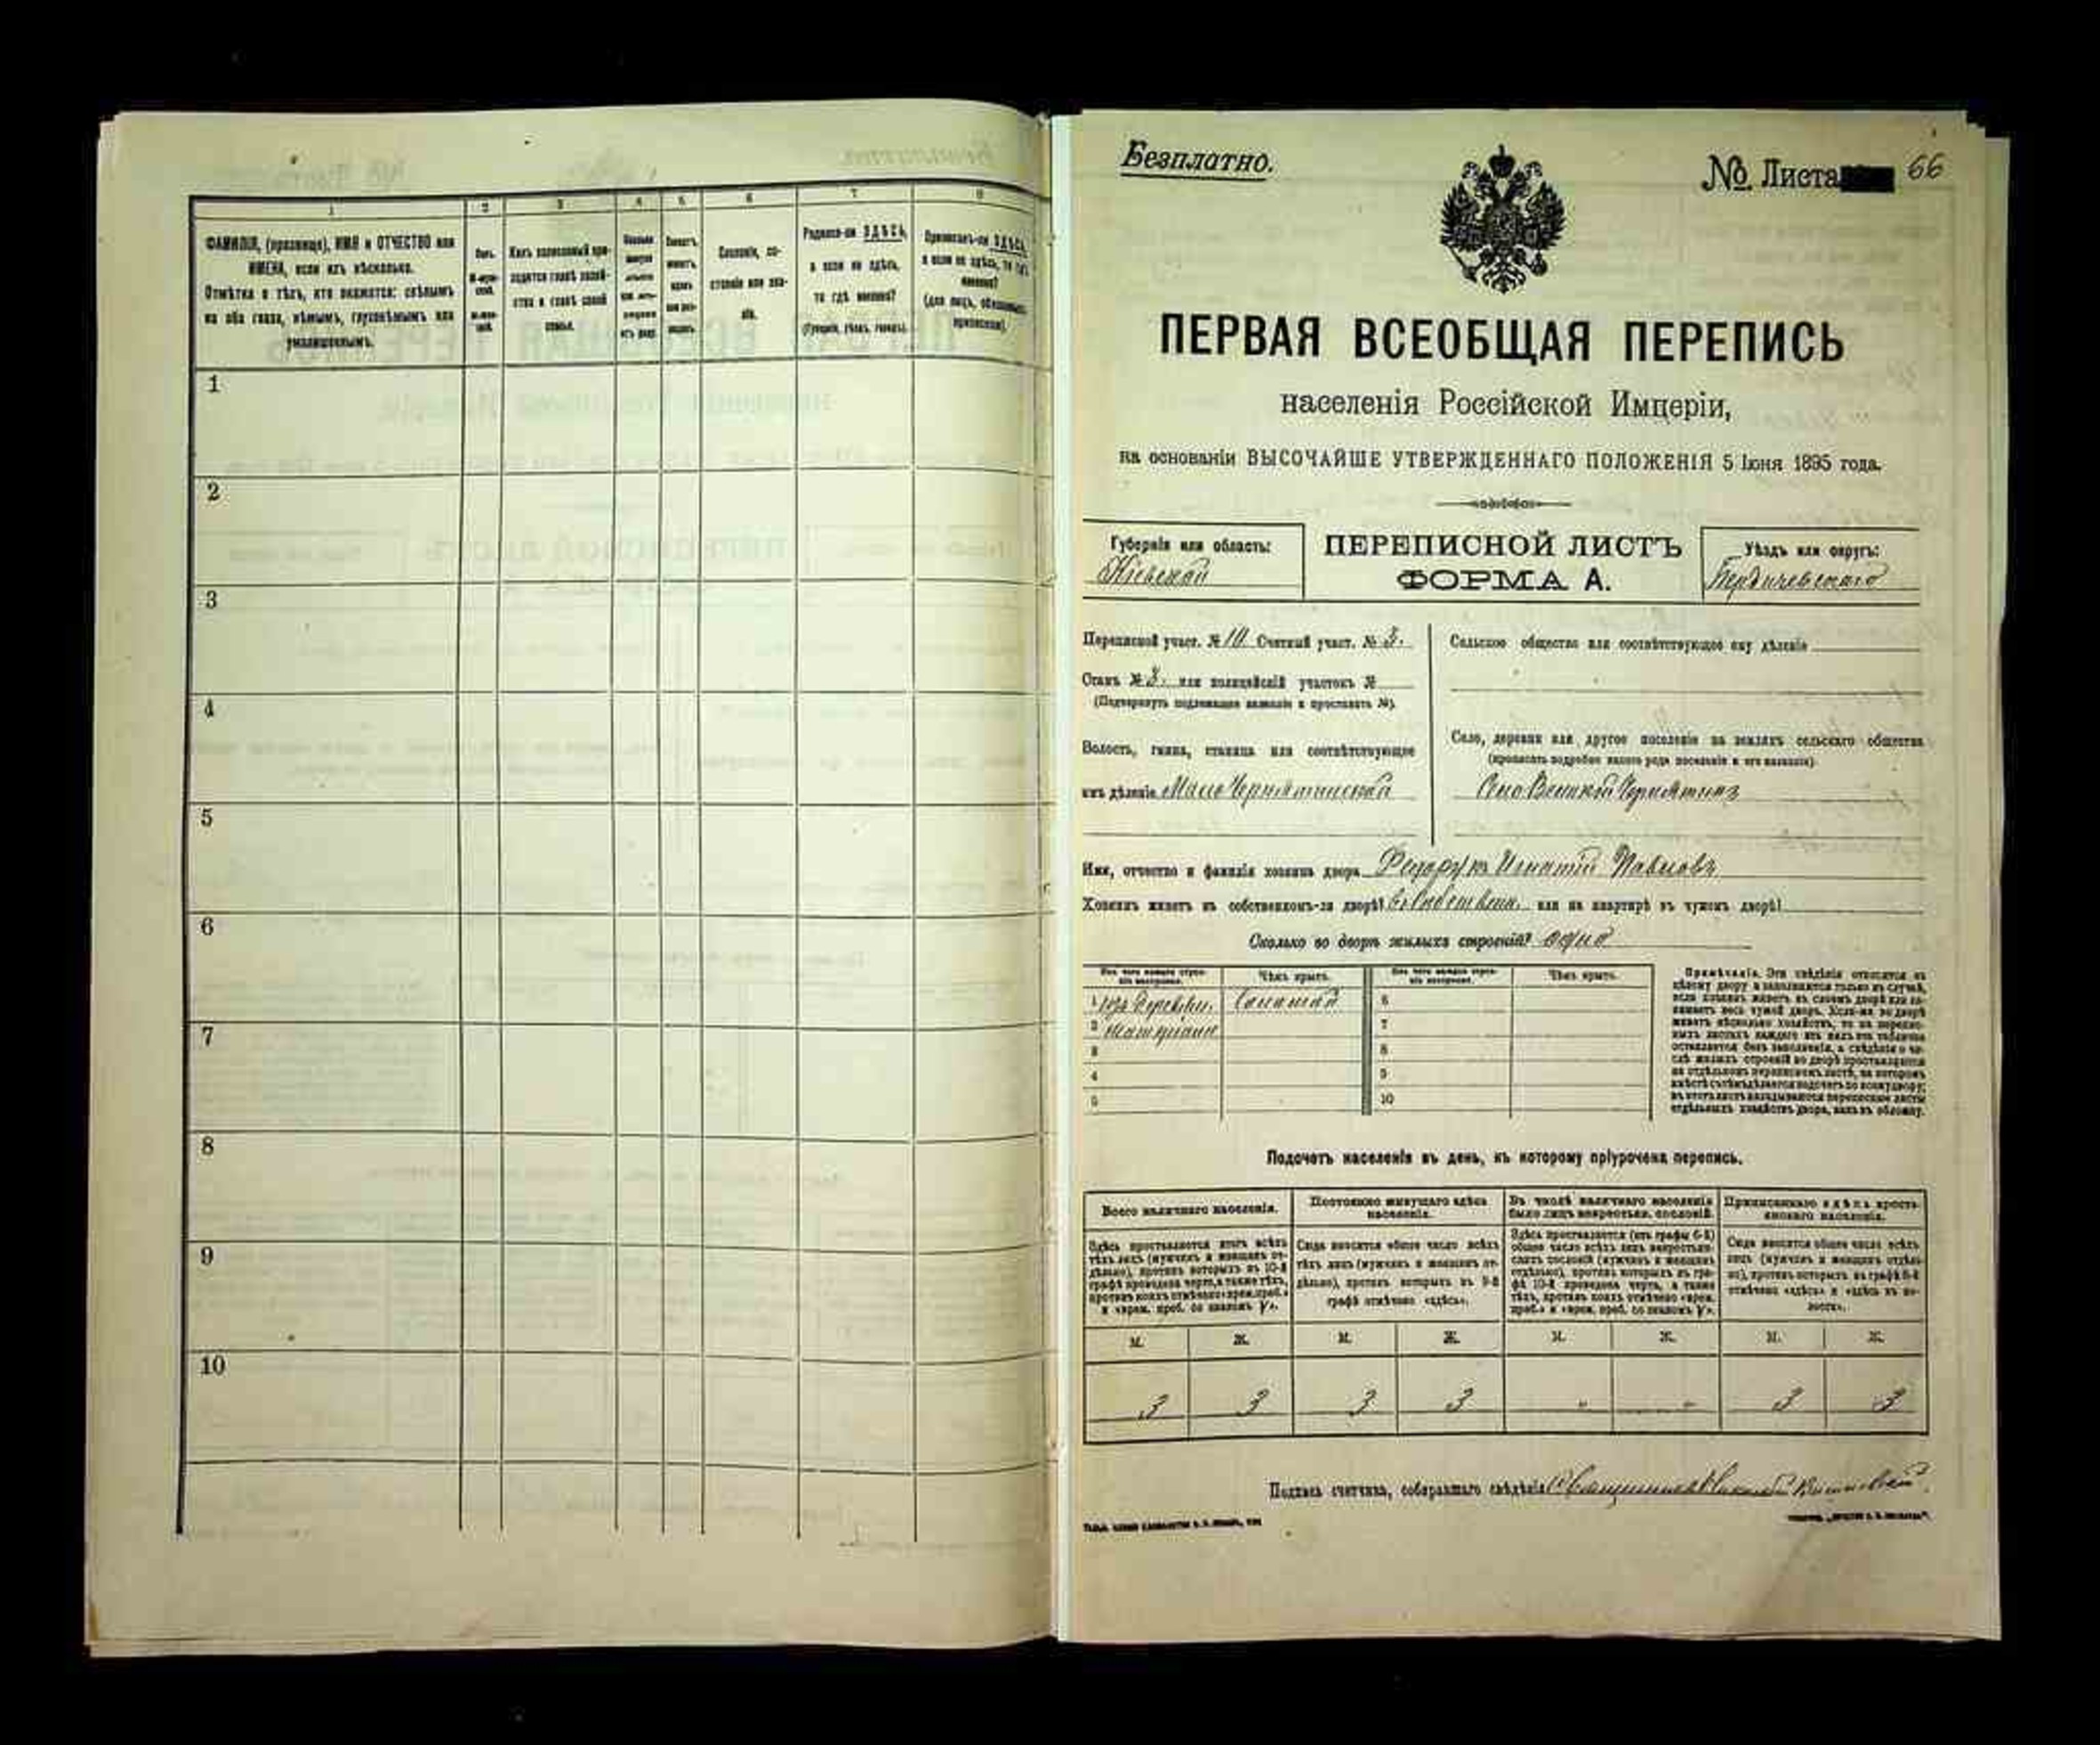 1 2 3 4 5 6 7 8
ФАМИЛІЯ, (прозвище), ИМЯ и ОТЧЕСТВО или
ИМЕНА, если ихъ нѣсколько.
Отмѣтка о тѣхъ, кто окажется: слѣпымъ
на оба глаза, нѣмымъ, глухонѣмымъ или
умалишеннымъ.
Полъ.
Какъ записанный при-
ходится главѣ хозяй-
ства и главѣ своей
семьи.
Сословіе, со-
стояніе или зва-
ніе.
Родился-ли ЗДѢСЬ,
а если не здѣсь,
то гдѣ именно?
(Губернія, уѣздъ, городъ).
Приписанъ-ли ЗДѢСЬ,
а если не здѣсь, то гдѣ
именно?
(для лицъ, обязанныхъ
припискою).
1
2
3
4
5
6
7
8
9
10
Безплатно.
№ Листа 66
ПЕРВАЯ ВСЕОБЩАЯ ПЕРЕПИСЬ
населенія Россійской Имперіи,
на основаніи ВЫСОЧАЙШЕ УТВЕРЖДЕННАГО ПОЛОЖЕНІЯ 5 Іюня 1895 года.
Губернія или область:
Кіевской
ПЕРЕПИСНОЙ ЛИСТЪ
ФОРМА А.
Уѣздъ или округъ:
Бердичевскаго
Переписной участ. № 10 Счетный участ. № 3.
Станъ № 3. или полицейскій участокъ №
(Подчеркнуть подлежащее названіе и проставить №).
Волость, гмина, станица или соотвѣтствующее
имъ дѣленіе Мало Чернятинской
Сельское общество или соотвѣтствующее ему дѣленіе
Село, деревня или другое поселеніе на земляхъ сельскаго общества
(прописать подробно какого рода поселеніе и его названіе).
Село Великій Чернятинъ
Имя, отчество и фамилія хозяина двора Игнатій Павловъ
Хозяинъ живетъ въ собственномъ-ли дворѣ? или на квартирѣ въ чужомъ дворѣ?
Сколько во дворѣ жилыхъ строеній? одно
Изъ чего каждое строе-
ніе выстроено.
Чѣмъ крыто.
Изъ чего каждое строе-
ніе выстроено.
Чѣмъ крыто.
1 изъ деревян. Соломой 6
2 матеріала 7
3 8
4 9
5 10
Примѣчаніе. Эти свѣдѣнія относятся къ
цѣлому двору и заполняются только въ случаѣ,
если хозяинъ живетъ въ своемъ дворѣ или за-
нимаетъ весь чужой дворъ. Если-же во дворѣ
живетъ нѣсколько хозяйствъ, то на перепис-
ныхъ листахъ каждаго изъ нихъ эта табличка
оставляется безъ заполненія, а свѣдѣнія о чи-
слѣ жилыхъ строеній во дворѣ проставляются
на отдѣльномъ переписномъ листѣ, на которомъ
вмѣстѣ съ тѣмъ дѣлается подсчетъ по всему двору;
въ этотъ листъ вкладываются переписные листы
отдѣльныхъ хозяйствъ двора, какъ въ обложку.
Подсчетъ населенія въ день, къ которому пріурочена перепись.
Всего наличнаго населенія.
Постоянно живущаго здѣсь
населенія.
Въ числѣ наличнаго населенія
было лицъ некрестьян. сословій.
Приписаннаго здѣсь кресть-
янскаго населенія.
Здѣсь проставляется итогъ всѣхъ
тѣхъ лицъ (мужчинъ и женщинъ от-
дѣльно), противъ которыхъ въ 10-й
графѣ проведена черта, а также тѣхъ,
противъ коихъ отмѣчено «врем. преб.»
и «врем. преб. со знакомъ V».
Сюда вносится общее число всѣхъ
тѣхъ лицъ (мужчинъ и женщинъ от-
дѣльно), противъ которыхъ въ 9-й
графѣ отмѣчено «здѣсь».
Здѣсь проставляется (изъ графы 6-й)
общее число всѣхъ лицъ некрестьян-
скихъ сословій (мужчинъ и женщинъ
отдѣльно), противъ которыхъ въ гра-
фѣ 10-й проведена черта, а также
тѣхъ, противъ коихъ отмѣчено «врем.
преб.» и «врем. преб. со знакомъ V».
Сюда вносится общее число всѣхъ
лицъ (мужчинъ и женщинъ отдѣль-
но), противъ которыхъ въ графѣ 8-й
отмѣчено «здѣсь» и «здѣсь въ во-
лости».
М. Ж. М. Ж. М. Ж. М. Ж.
3 3 3 3 " " 3 3
Подпись счетчика, собиравшаго свѣдѣнія